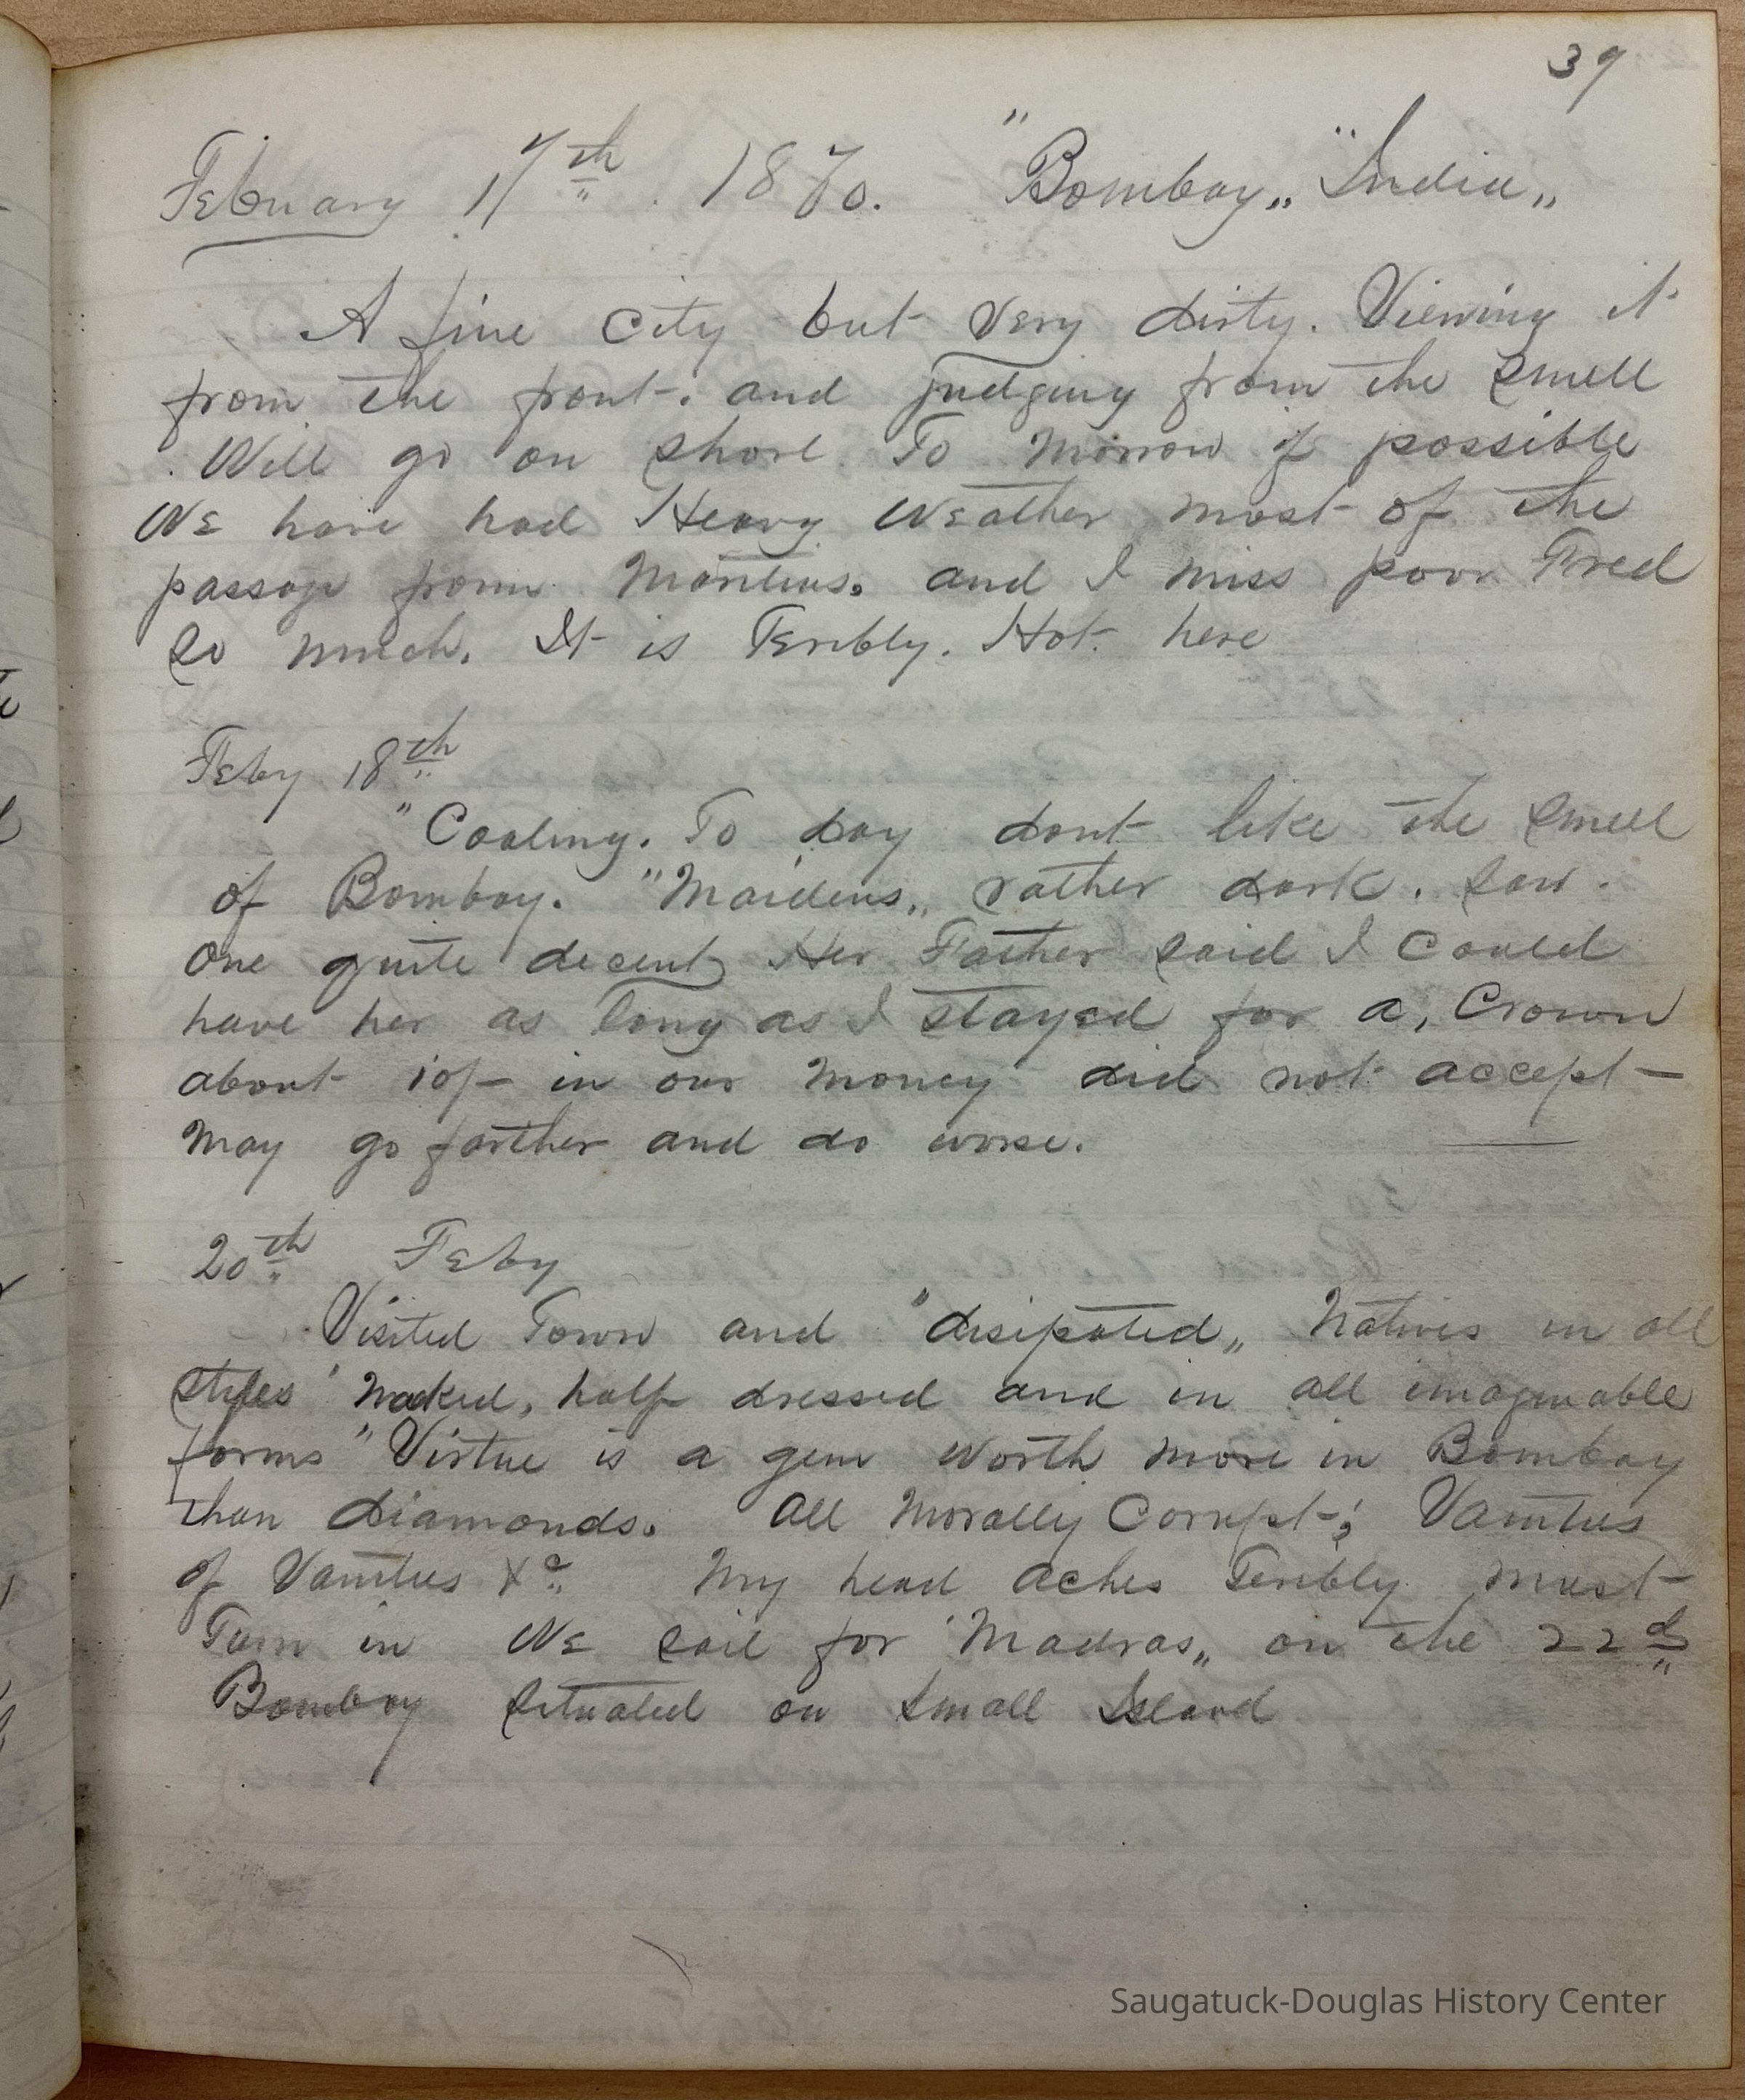 39
February 17th. 1870. "Bombay„ "India„
A fine City but very dirty. Viewing it
from the front. and judging from the smell
. Will go on shore To Morrow if possible
We have had Heavy Weather most of the
passage from Mauritius. and I miss poor Fred
so much. It is Teribly. Hot. here
Feby 18th
"Coaling. To day dont like the smell
of Bombay. "Maidens„ rather dark. saw.
One quite decent Her Father said I Could
have her as long as I stayed for a, Crown
about 10/- in our money did not accept —
May go farther and do worse.
20th Feby
Visited Town and "disipated„ Natives in all
styles naked, half dressed and in all imaginable
forms "Virtue is a gem worth more in Bombay
than diamonds. All Morally Corrupt; Vanitus
of Vanitus &c. My head aches Teribly must
Turn in We sail for "Madras„ on the 22d
Bombay situated on small Island
Saugatuck-Douglas History Center